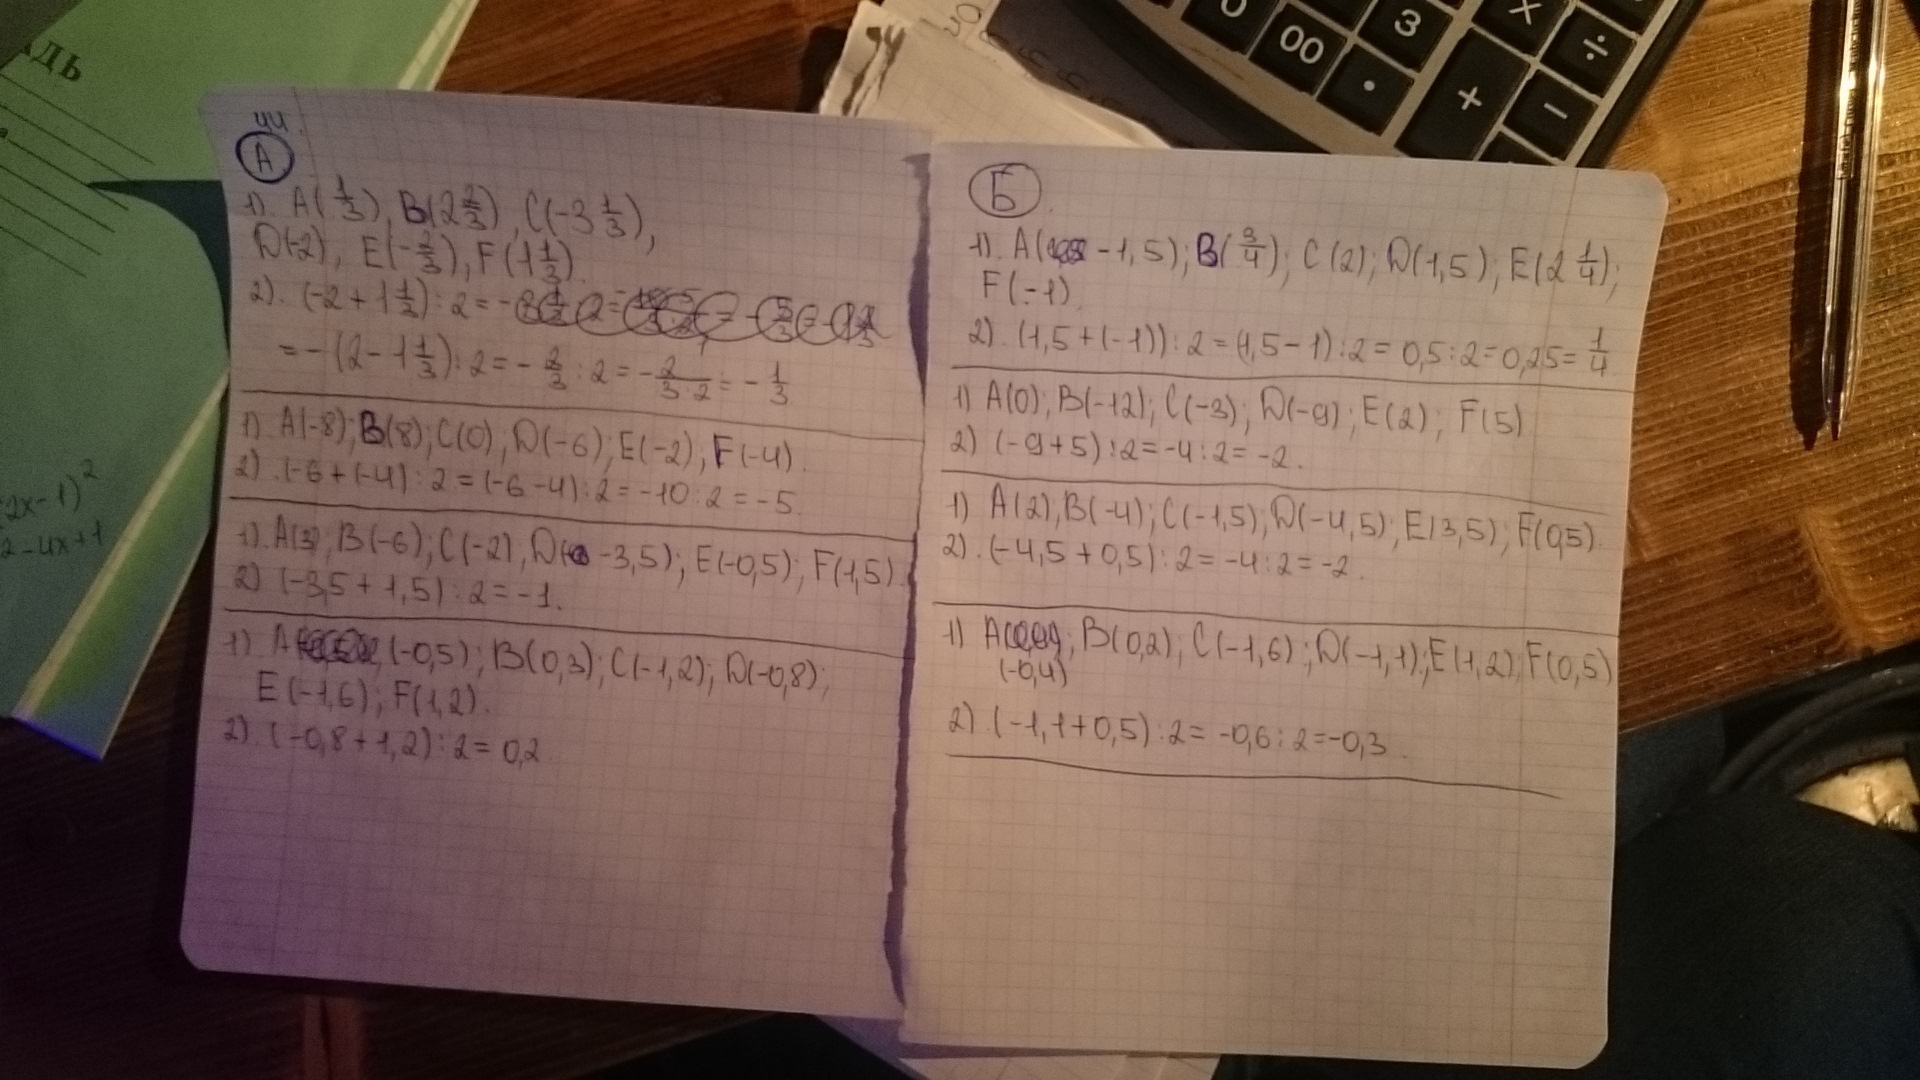 ДЬ
(2x-1)²
2-4x+1
44.
А
1). A(1/3), B(2 2/3), C(-3 1/3),
D(-2), E(-2/3), F(1 1/3).
2). (-2+1 1/3):2=-
=-(2-1 1/3):2=-2/3:2=-2/3·2=-1/3
1). A(-8); B(8); C(0), D(-6); E(-2); F(-4).
2). (-6+(-4):2=(-6-4):2=-10:2=-5.
1). A(3), B(-6); C(-2), D(-3,5); E(-0,5); F(1,5).
2) (-3,5+1,5):2=-1.
1) A(-0,5); B(0,3); C(-1,2); D(-0,8);
E(-1,6); F(1,2).
2). (-0,8+1,2):2=0,2
Б
1). A(-1,5); B(3/4); C(2); D(1,5); E(2 1/4);
F(-1)
2). (1,5+(-1)):2=(1,5-1):2=0,5:2=0,25=1/4
1) A(0); B(-12); C(-3); D(-9); E(2); F(5)
2) (-9+5):2=-4:2=-2.
1) A(2), B(-4); C(-1,5); D(-4,5); E(3,5); F(0,5).
2). (-4,5+0,5):2=-4:2=-2.
1) A; B(0,2); C(-1,6); D(-1,1); E(1,2); F(0,5)
(-0,4)
2) (-1,1+0,5):2=-0,6:2=-0,3.
0
00
3
·
×
+
÷
-